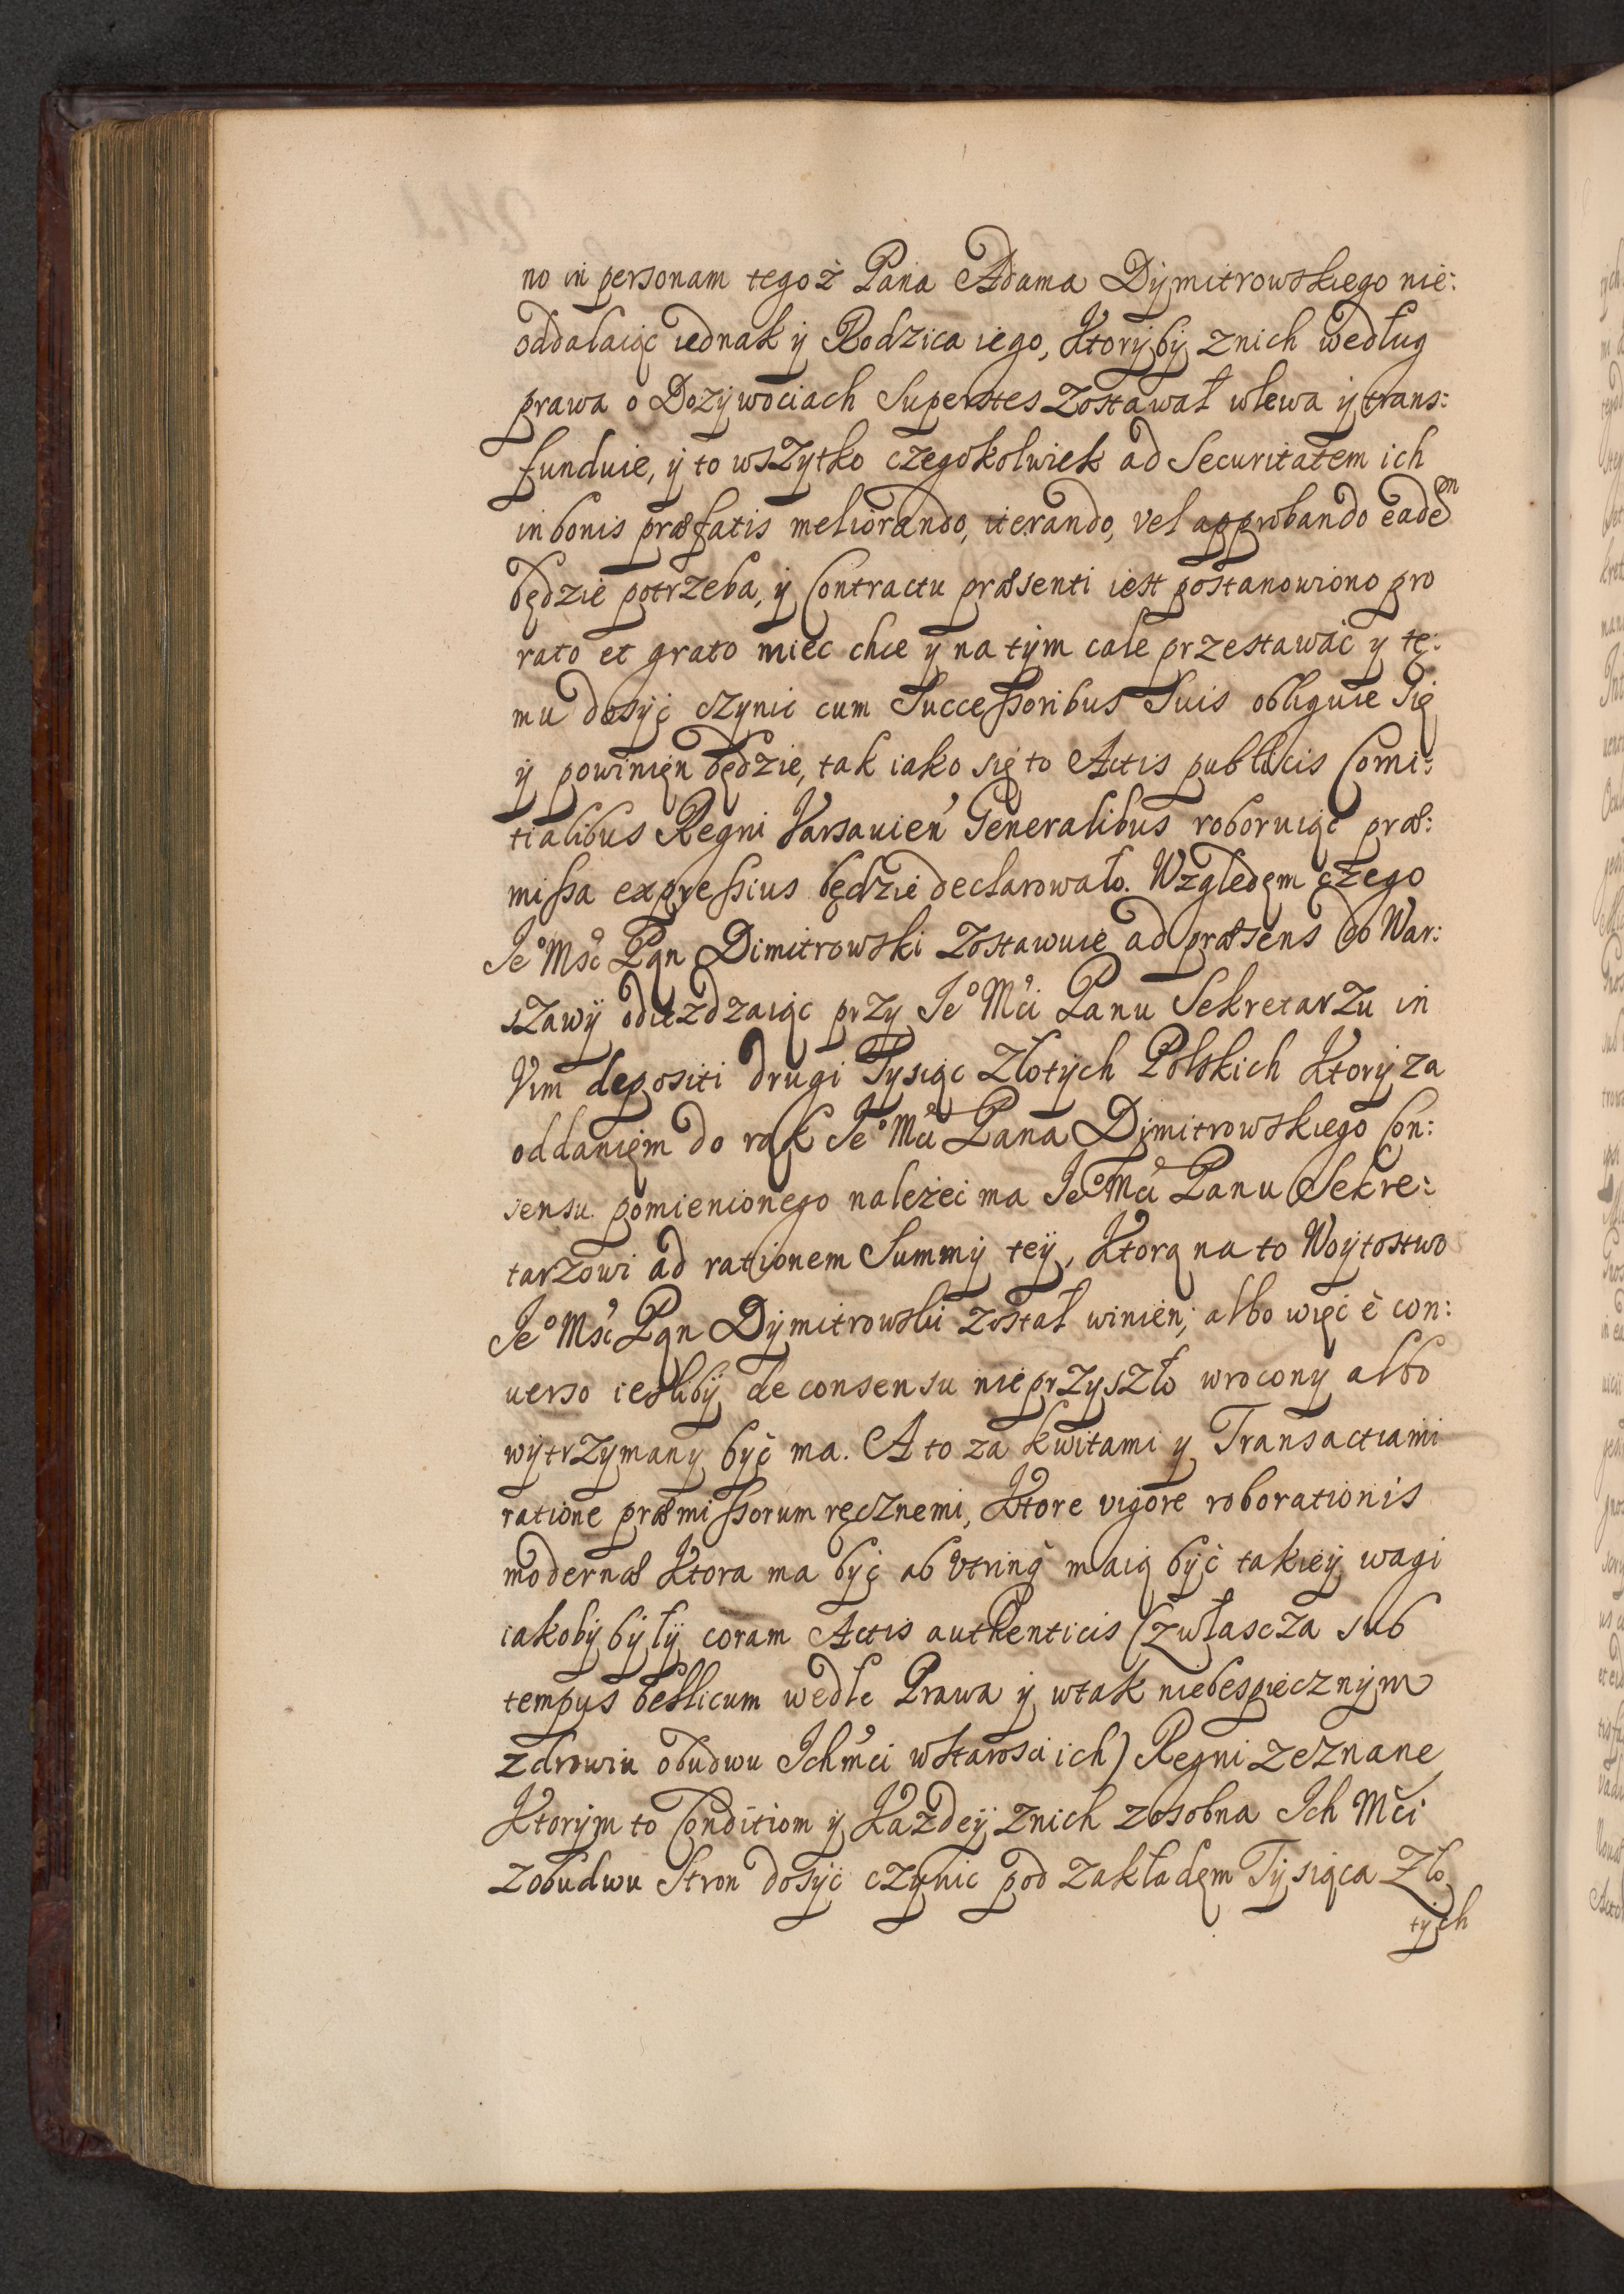 no in personam tegoż Pana Adama Dÿmitrowskiego nie:
oddalaiąc iednak ÿ Rodzica iego, Ktorÿbÿ znich według
prawa o Dozÿwociach Superstes zostawał wlewa ÿ trans:
funduie, ÿ to wszytko czegokolwiek ad Securitatem ich
in bonis præfatis meliorando, iterando, vel approbando eadẽ
będzie potrzeba, ÿ Contractu præsenti iest postanowiono pro
rato et grato miec chce y na tÿm cale przestawać y tę:
mu dosÿć czynic cum Successoribus Suis obliguie się
ÿ powinięn będzie, tak iako się to Actis publicis Comi:
tialibus Regni Varsavień Generalibus roboruiąc præ:
missa expressius będzie declarowało. Względęm czego
Je° Msć Pąn Dimitrowski zostawuie ad præsens do War:
szawÿ odiezdzaiąc przy Je° Mći Panu Sekretarzu in
Vim depositi drugi Tysiąc Złotÿch Polskich Ktorÿ za
oddanięm do rąk Je° Mći Pana Dÿmitrowskiego Con:
sensu pomienionego należeć ma Je° Mći Panu Sekre:
tarzowi ad rationem Summÿ teÿ, Ktorą na to Woÿtostwo
Je° Msć Pąn Dÿmitrowski został winien; albo więć è con:
uerso iesliby de consensu nieprzyszło wrocony albo
wÿtrzymany być ma. A to za kwitami y Transactiami
ratione præmissorum ręcznemi, Ktore vigore roborationis
modernæ Ktora ma być ab Vtrinq̃ maią bÿć takieÿ wagi
iakobÿ bÿłÿ coram Actis authenticis (zwłascza sub
tempus bellicum wedle Prawa ÿ wtak niebespiecznÿm
zdrowiu obudwu Ichm̃ci wstarosci ich) Regni zeznane
Ktorÿm to Conditiom ÿ Każdeÿ znich zosobna Ich Mći
zobudwu Stron dosÿć czynic pod zakładęm Tÿsiąca Zło
tÿch